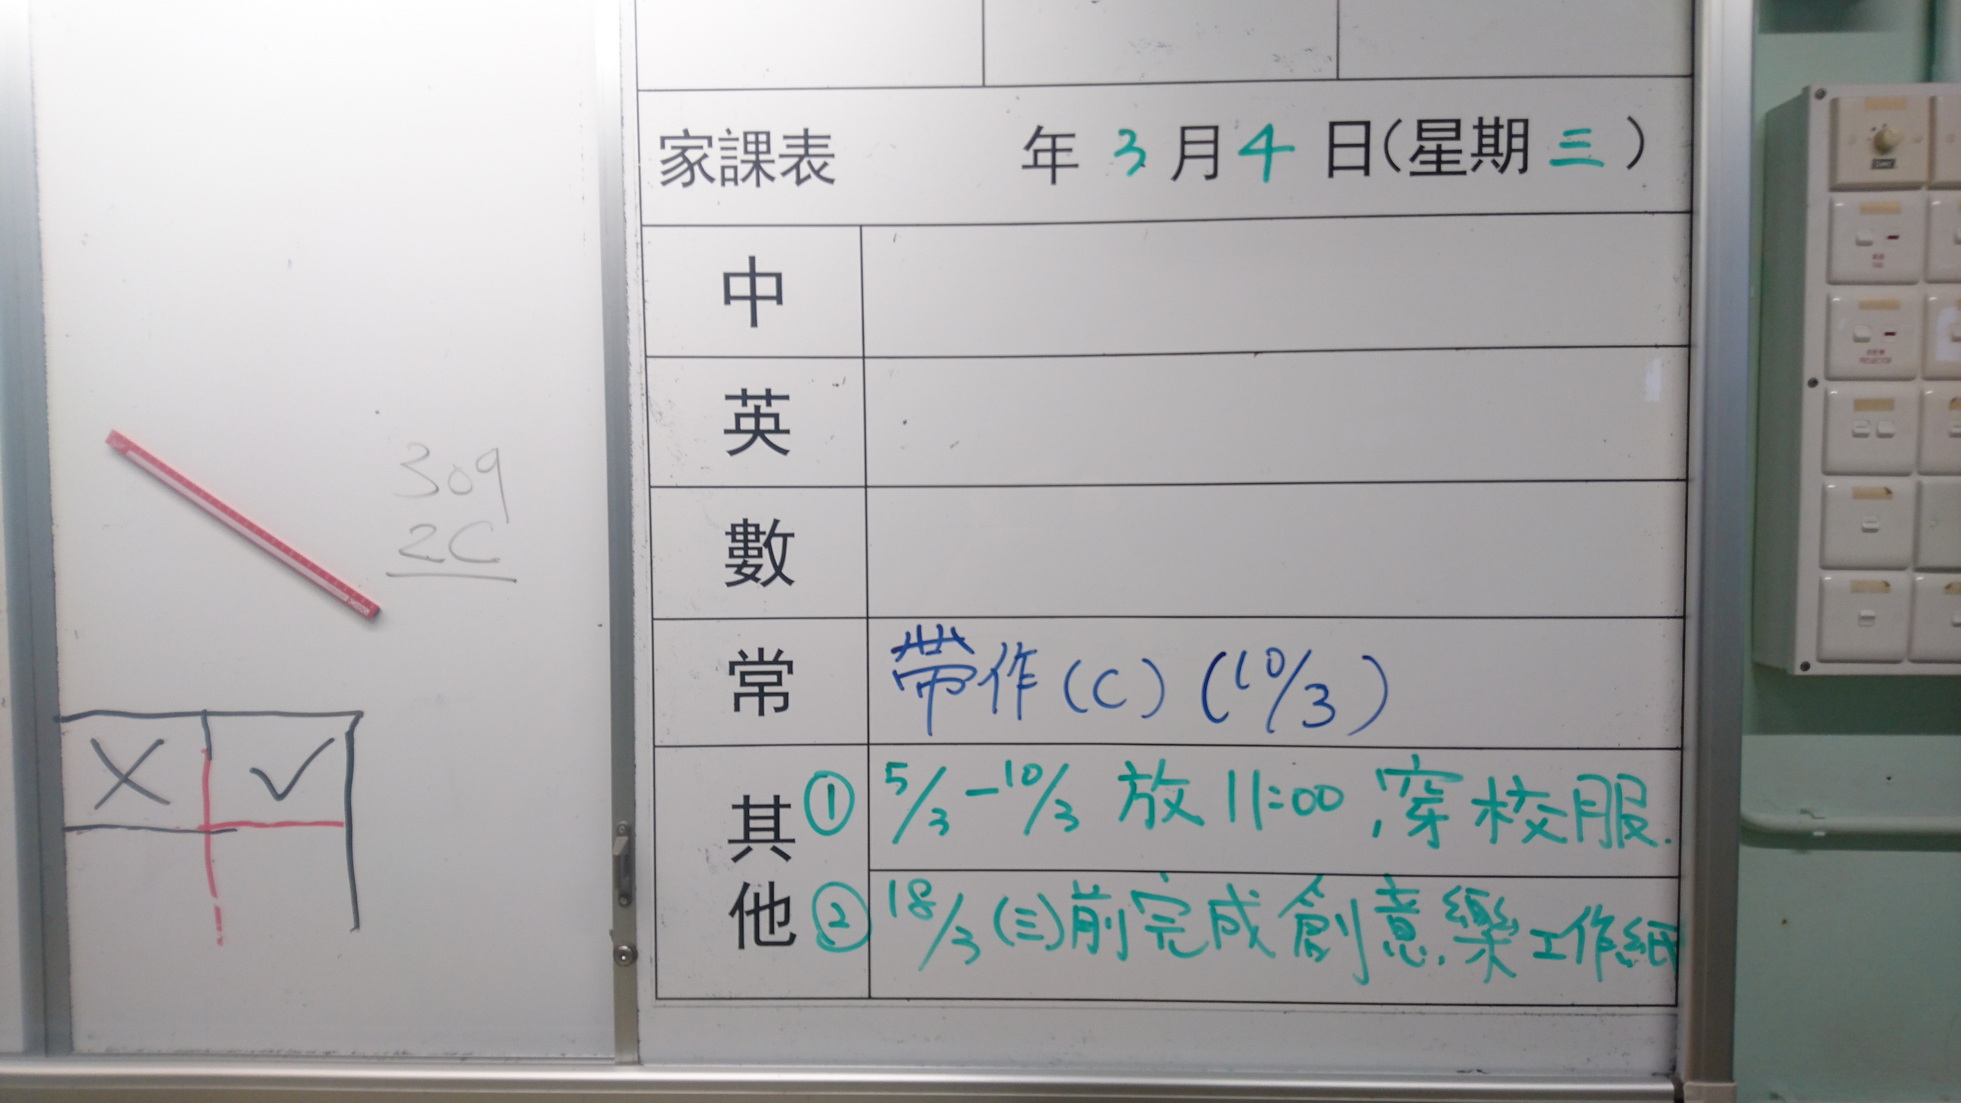 309
2C
家課表 年 3 月 4 日(星期 三 )
中
英
數
常 帶作(C) (10/3)
其他 ① 5/3-10/3 放 11:00,穿校服.
② 18/3 (三)前完成創意.樂工作紙